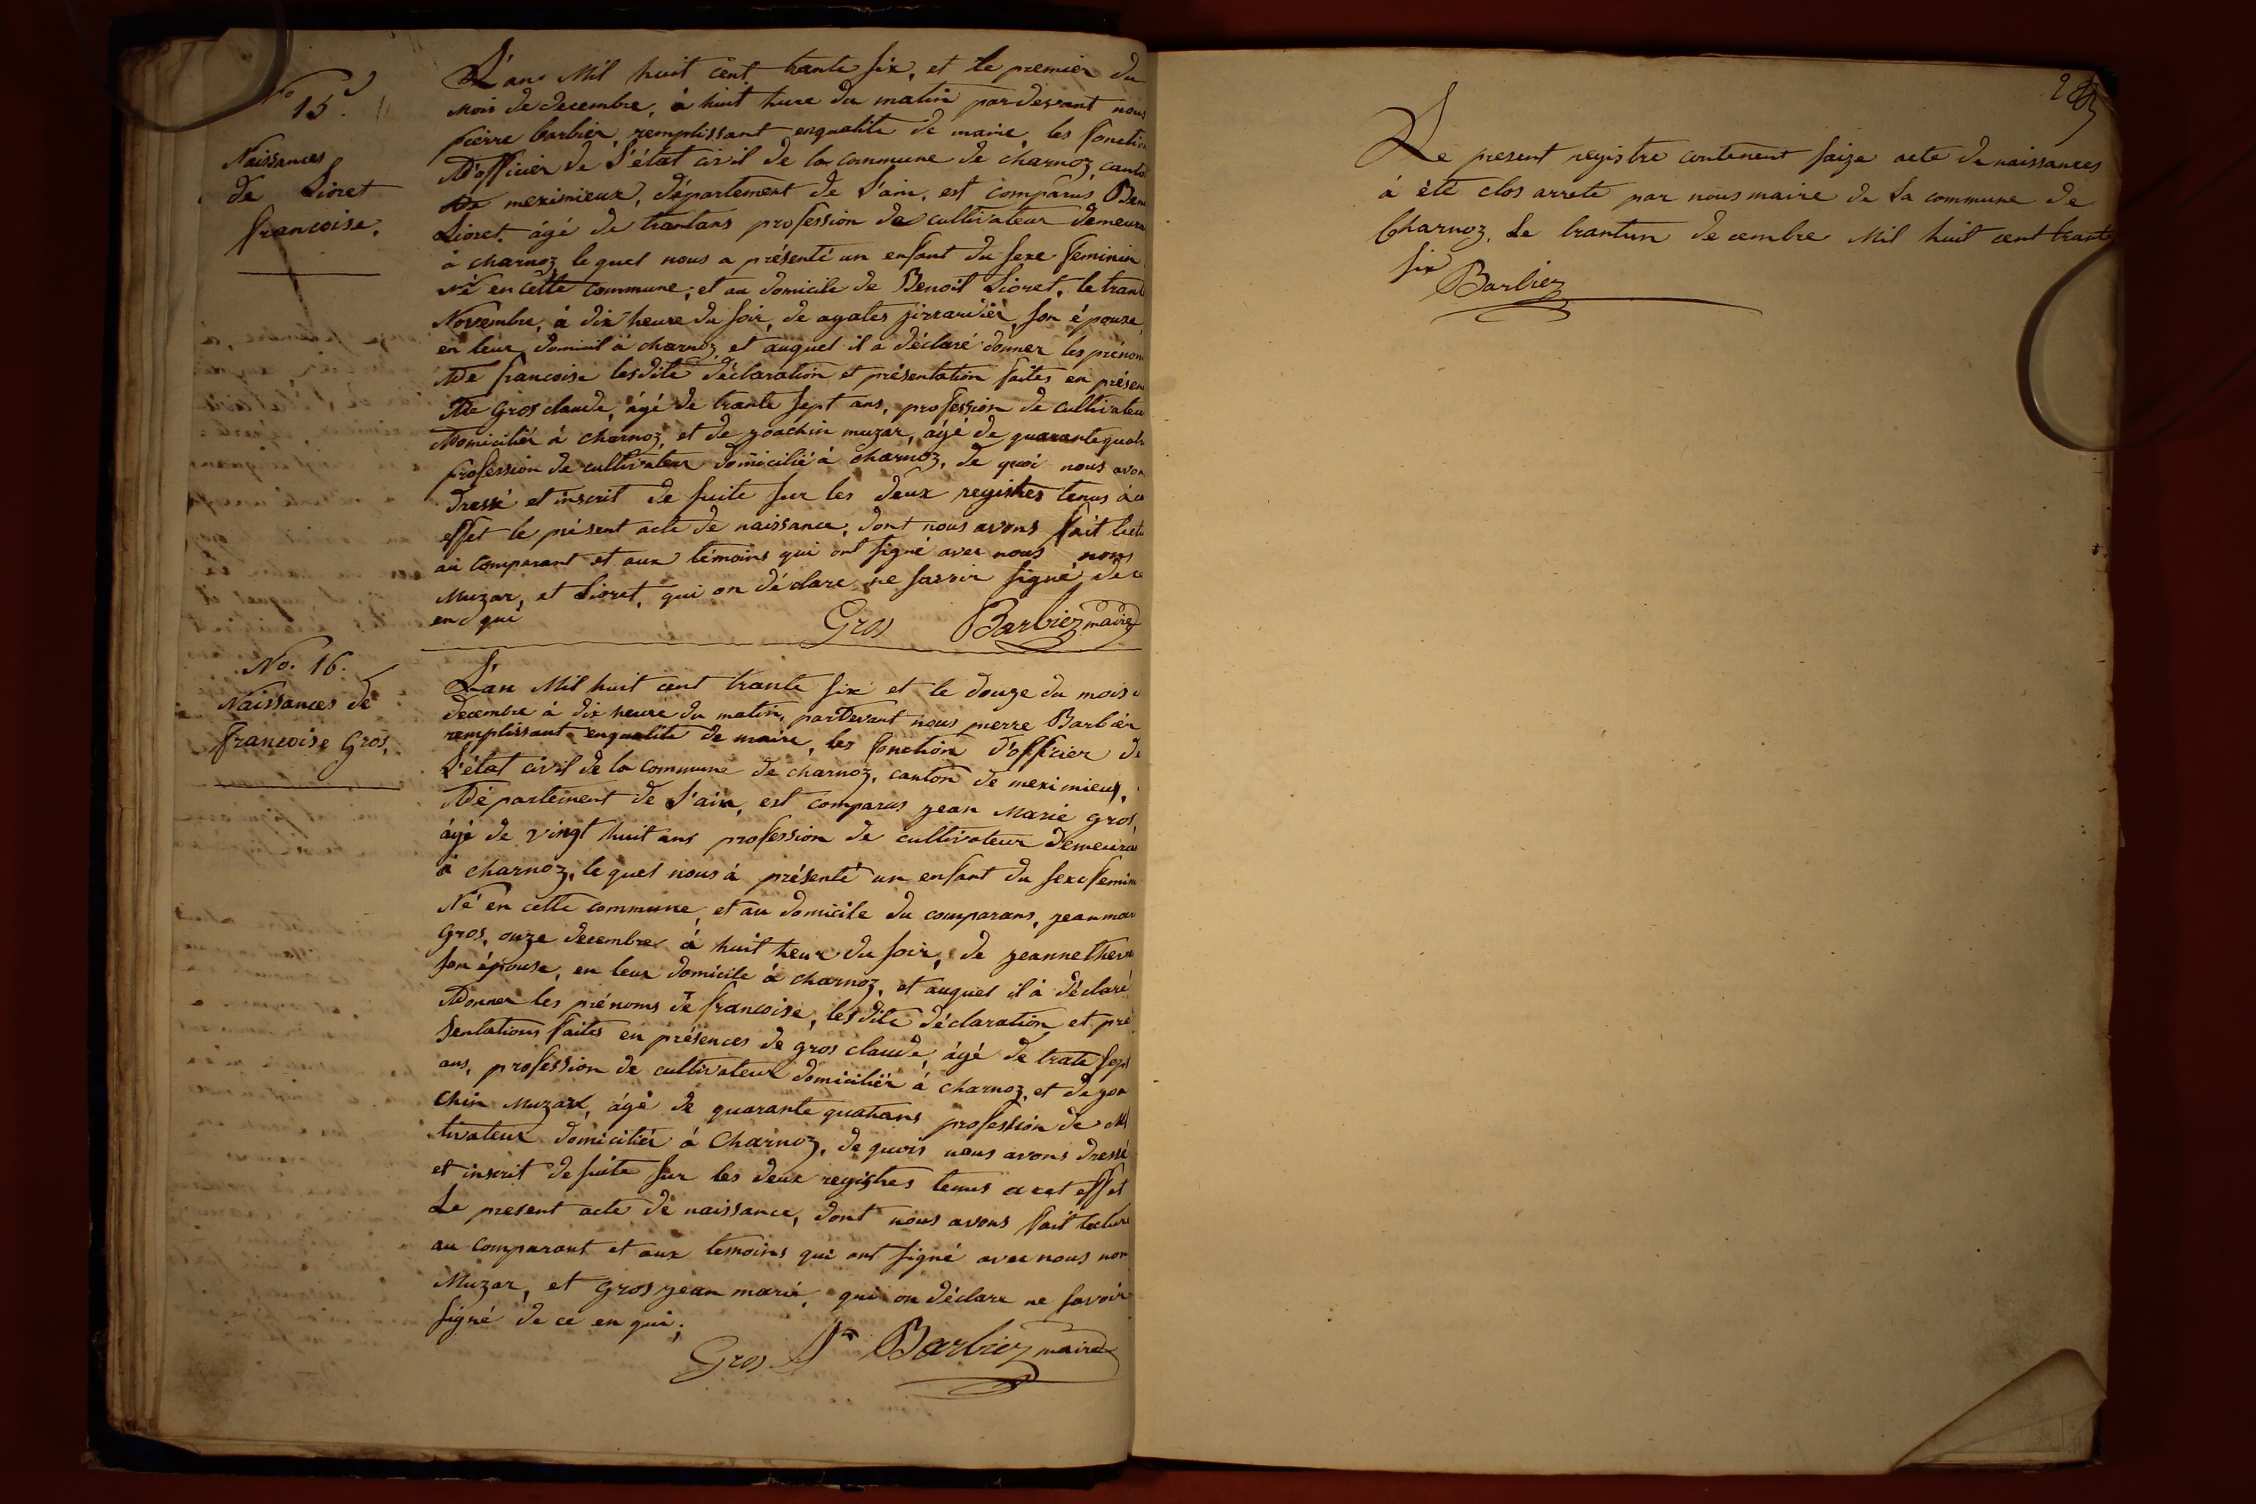 No
15.
Naissances
de Lioret
francoise.
L'an Mil huit cent trante six, et le premier du
mois de decembre, à huit hure du matin pardevant nous
pierre barbier, remplissant enqualite de maire les fonction
D'officier de l'état civil de la commune de charnoz, canto
de meximieux, département de l'ain, est comparus Ben
Lioret, âgé de trantans profession de cultivateur demeura
à charnoz lequel nous a présenté un enfant du sexe feminin
né en cette commune, et au domicile de Benoit Lioret, le trant
Novembre, à dix heure du soir, de agates girrardier, son épouse,
en leur domicil à charnoz et auquel il a déclaré donner les prénom
De francoise lesdite déclaration et présentation faites en présen
De Gros claude, âgé de trante sept ans, profession de cultivateu
Domicilier à charnoz, et de yoachin muzar, âgé de quarante quatr
profession de cultivateur domicilié à charnoz, de quoi nous avon
dressé et inscrit de suite sur les deux registres tenus à ce
effet le présent acte de naissance, dont nous avons fait lectu
au comparant et aux témoins qui ont signé avec nous non
Muzar, et Lioret, qui on déclare ne savoir signé de ce
en qui
Gros Barbier maire
No. 16.
Naissances de
francoise Gros.
L'an Mil huit cent trante six et le douze du mois
decembre à dix heure du matin, pardevant nous pierre Barbier
remplissant enqualite de maire, les fonction d'officier de
L'état civil de la commune de charnoz, canton de meximieux,
Département de l'ain, est comparus jean Marie gros,
âgé de vingt huit ans profession de cultivateur demeura
à charnoz, lequel nous à présenté un enfant du sexe femin
Né en cette commune, et au domicile du comparans, jean mari
Gros, onze decembre à huit heur du soir, de jeanne
son épouse, en leur domicile à charnoz, et auquel il à déclaré
Donner les prénoms de francoise, lesdite déclaration et pré
sentations faites en présences de gros claude, âgé de trate sept
ans, profession de cultivateur domicilier à charnoz, et de yoa
chin Muzard, âgé de quarante quatrans profession de cul
tivateur domicilier à Charnoz, de quois nous avons dressé
et inscrit de suite sur les deux registres tenus a cet effet
Le present acte de naissance, dont nous avons fait lecture
au comparant et aux temoins qui ont signé avec nous non
Muzar, et Gros jean marie, qui on déclare ne savoir
signé de ce en qui,
Gros Barbier maire
Le present registre contenent saize acte de naissances
à été clos arrete par nous maire de la commune de
Charnoz, Le trantun decembre Mil huit cent trante
six
Barbier